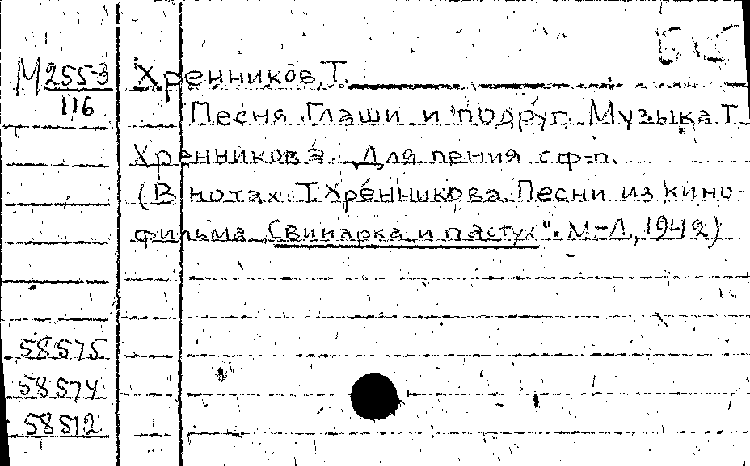 М 255-3 Хренников, Т.
116
Песня Глаши и подруг. Музыка Т.
Хренникова. Для пения с ф-п.
(В нотах: Т. Хренникова. Песни из кино-
фильма „Свинарка и пастух". М-Л, 1942)
58575
58574
58512